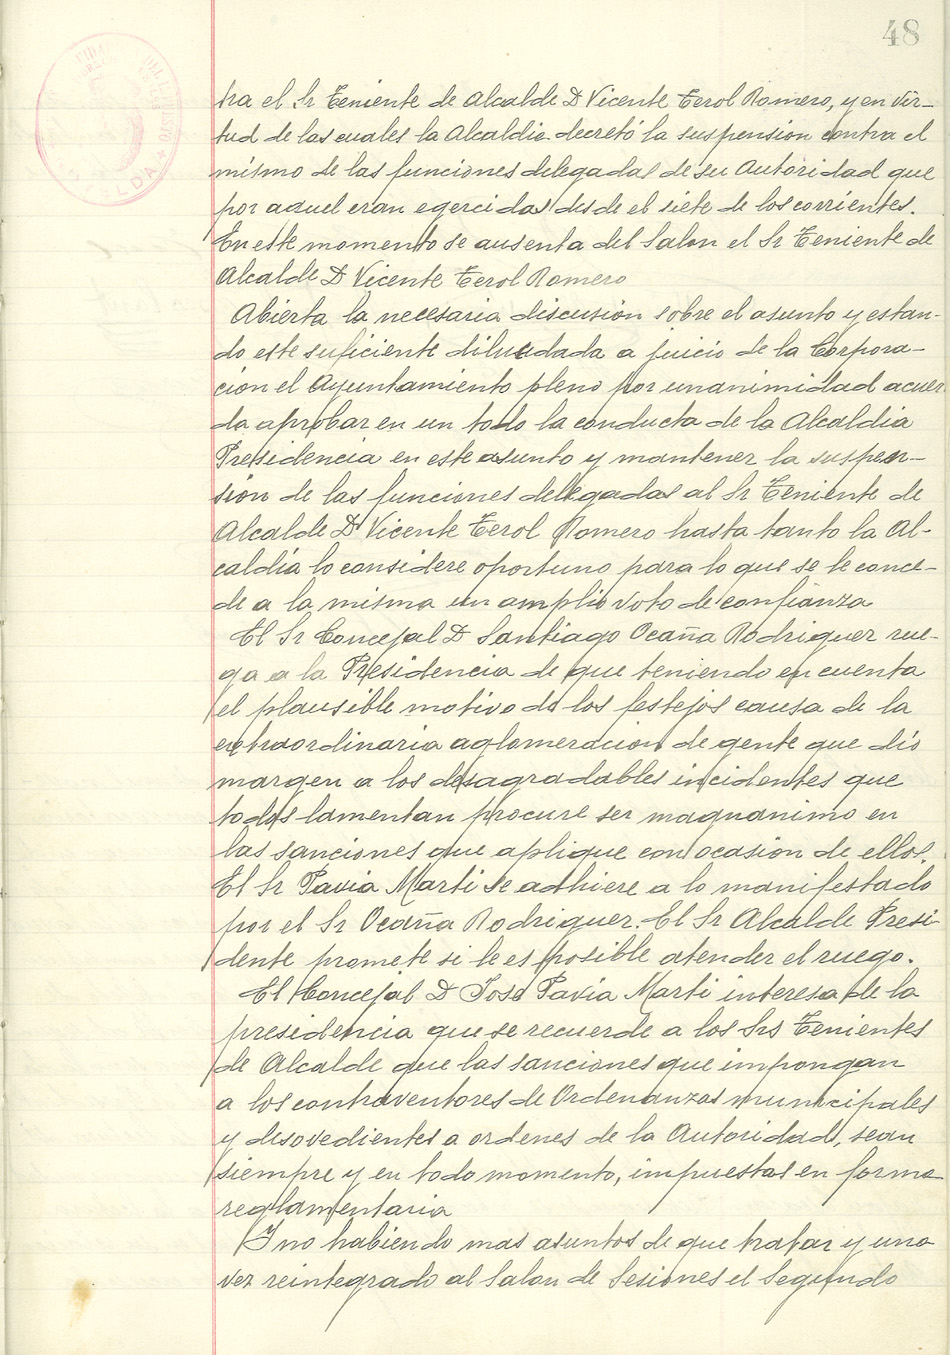 48
tra el Sr Teniente de Alcalde D Vicente Terol Romero, y en vir-
tud de las cuales la Alcaldia decretó la suspension contra el
mismo de las funciones delegadas de su Autoridad que
por aquel eran egercidas desde el siete de los corrientes.
En este momento se ausenta del Salon el Sr Teniente de
Alcalde D Vicente Terol Romero
Abierta la necesaria discusión sobre el asunto y estan-
do este suficiente dilucidada a juicio de la Corpora-
cion el Ayuntamiento pleno por unanimidad acuer
da aprobar en un todo la conducta de la Alcaldia
Presidencia en este asunto y mantener la suspen-
sion de las funciones delegadas al Sr Teniente de
Alcalde D Vicente Terol Romero hasta tanto la Al-
caldia lo considere oportuno para lo que se le conce-
de a la misma un amplio voto de confianza
El Sr Concejal D Santiago Ocaña Rodriguez rue-
ga a la Presidencia de que teniendo en cuenta
el plausible motivo de los festejos causa de la
extraordinaria aglomeracion de gente que dio
margen a los desagradables incidentes que
todos lamentan procure ser magnanimo en
las sanciones que aplique con ocasion de ellos.
El Sr Pavia Marti se adhiere a lo manifestado
por el Sr Ocaña Rodriguez. El Sr Alcalde Presi-
dente promete si le es posible atender el ruego.
El Concejal D Jose Pavia Marti interesa de la
presidencia que se recuerde a los Srs Tenientes
de Alcalde que las sanciones que impongan
a los contraventores de Ordenanzas municipales
y desovedientes a ordenes de la Autoridad, sean
siempre y en todo momento, impuestas en forma
reglamentaria
Y no habiendo mas asuntos de que tratar y una
vez reintegrado al Salon de Sesiones el Segundo